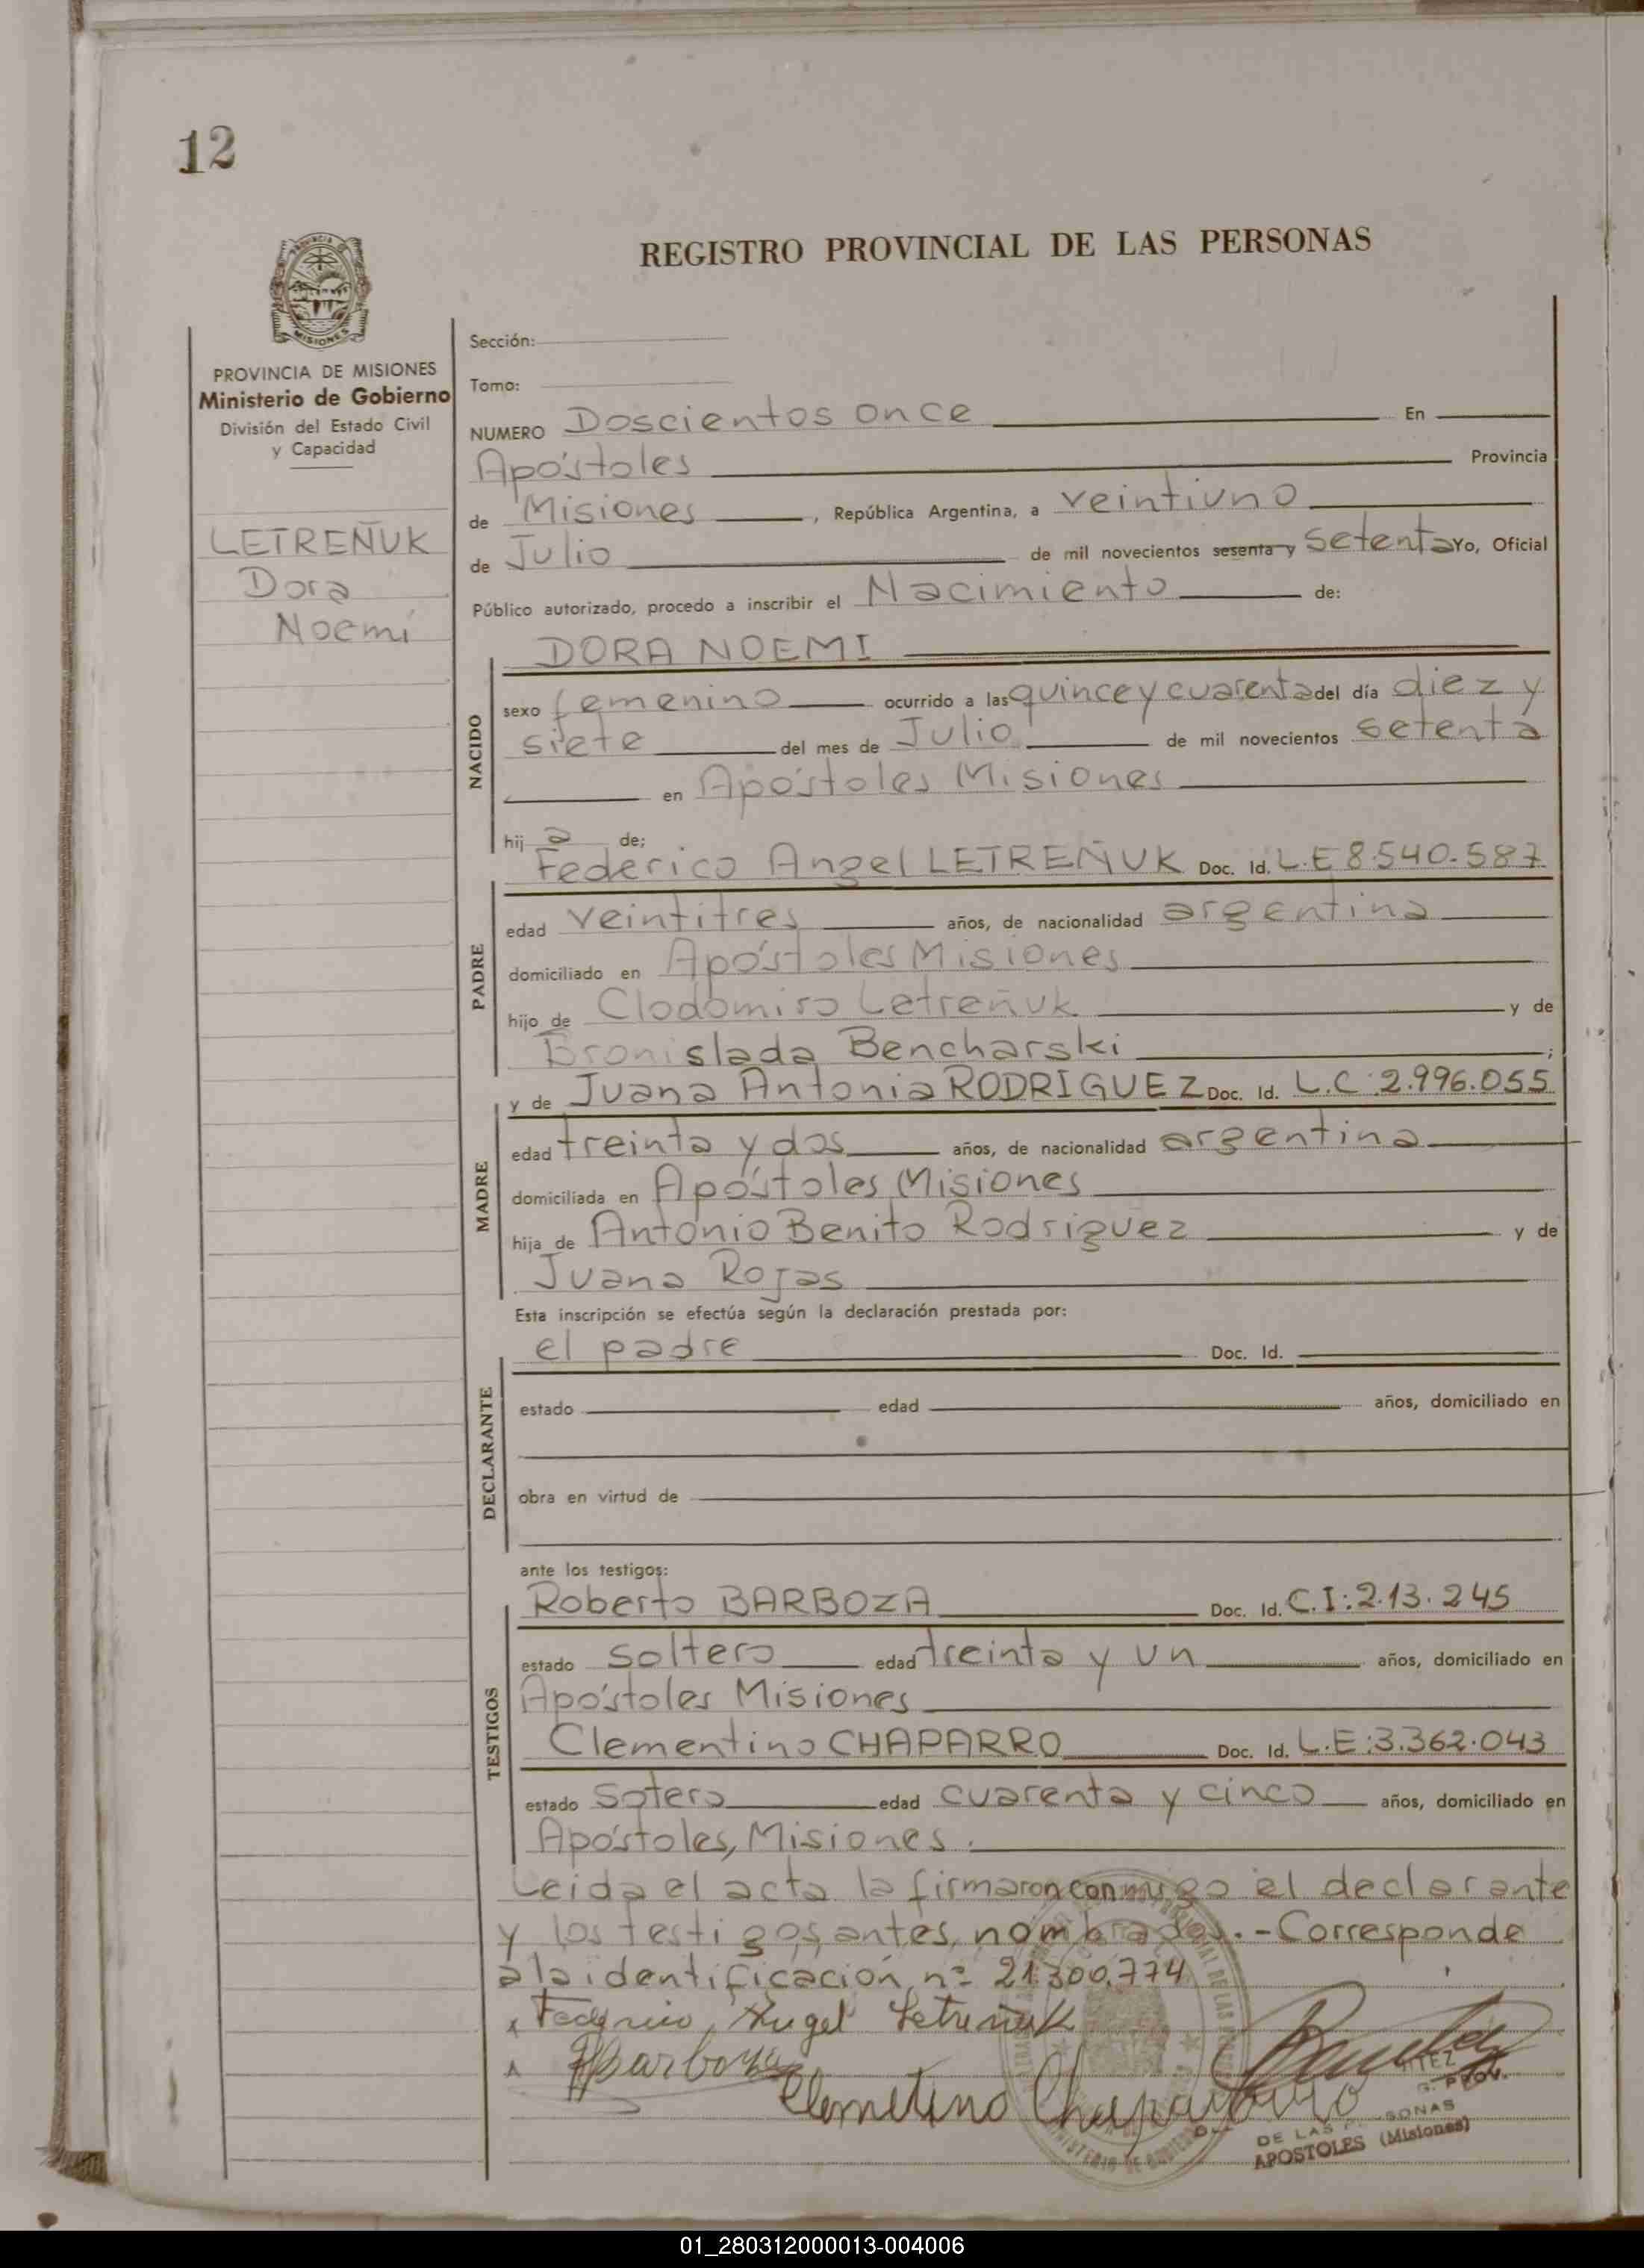 12
REGISTRO PROVINCIAL DE LAS PERSONAS
MISIONES
PROVINCIA DE MISIONES
Ministerio de Gobierno
División del Estado Civil
y Capacidad
LETREÑUK
Dora
Noemí
Sección:
Tomo:
NUMERO Doscientos once En
Apóstoles Provincia
de Misiones, República Argentina, a veintiuno
de Julio de mil novecientos sesenta y setenta Yo, Oficial
Público autorizado, procedo a inscribir el Nacimiento de:
DORA NOEMI
NACIDO
sexo femenino ocurrido a las quince y cuarenta del día diez y
siete del mes de Julio de mil novecientos setenta
en Apóstoles Misiones
hija de:
Federico Angel LETREÑUK Doc. Id. L.E 8.540.587
PADRE
edad veintitres años, de nacionalidad argentina
domiciliado en Apóstoles Misiones
hijo de Clodomiro Letreñuk y de
Bronislada Bencharski;
y de Juana Antonia RODRIGUEZ Doc. Id. L.C 2.996.055
MADRE
edad treinta y dos años, de nacionalidad argentina
domiciliada en Apóstoles Misiones
hija de Antonio Benito Rodriguez y de
Juana Rojas
Esta inscripción se efectúa según la declaración prestada por:
el padre Doc. Id.
DECLARANTE
estado edad años, domiciliado en
obra en virtud de
ante los testigos:
Roberto BARBOZA Doc. Id. C.I:213.245
TESTIGOS
estado soltero edad treinta y un años, domiciliado en
Apóstoles Misiones
Clementino CHAPARRO Doc. Id. L.E:3.362.043
estado sotero edad cuarenta y cinco años, domiciliado en
Apóstoles, Misiones.
Leida el acta la firmaron conmigo el declarante
y los testigos antes nombrados.-Corresponde
a la identificación nº 21.300.774
Federico Angel Letreñuk
Barboza
Clemetino Chaparro
DE LAS PERSONAS
APOSTOLES (Misiones)
01_280312000013-004006